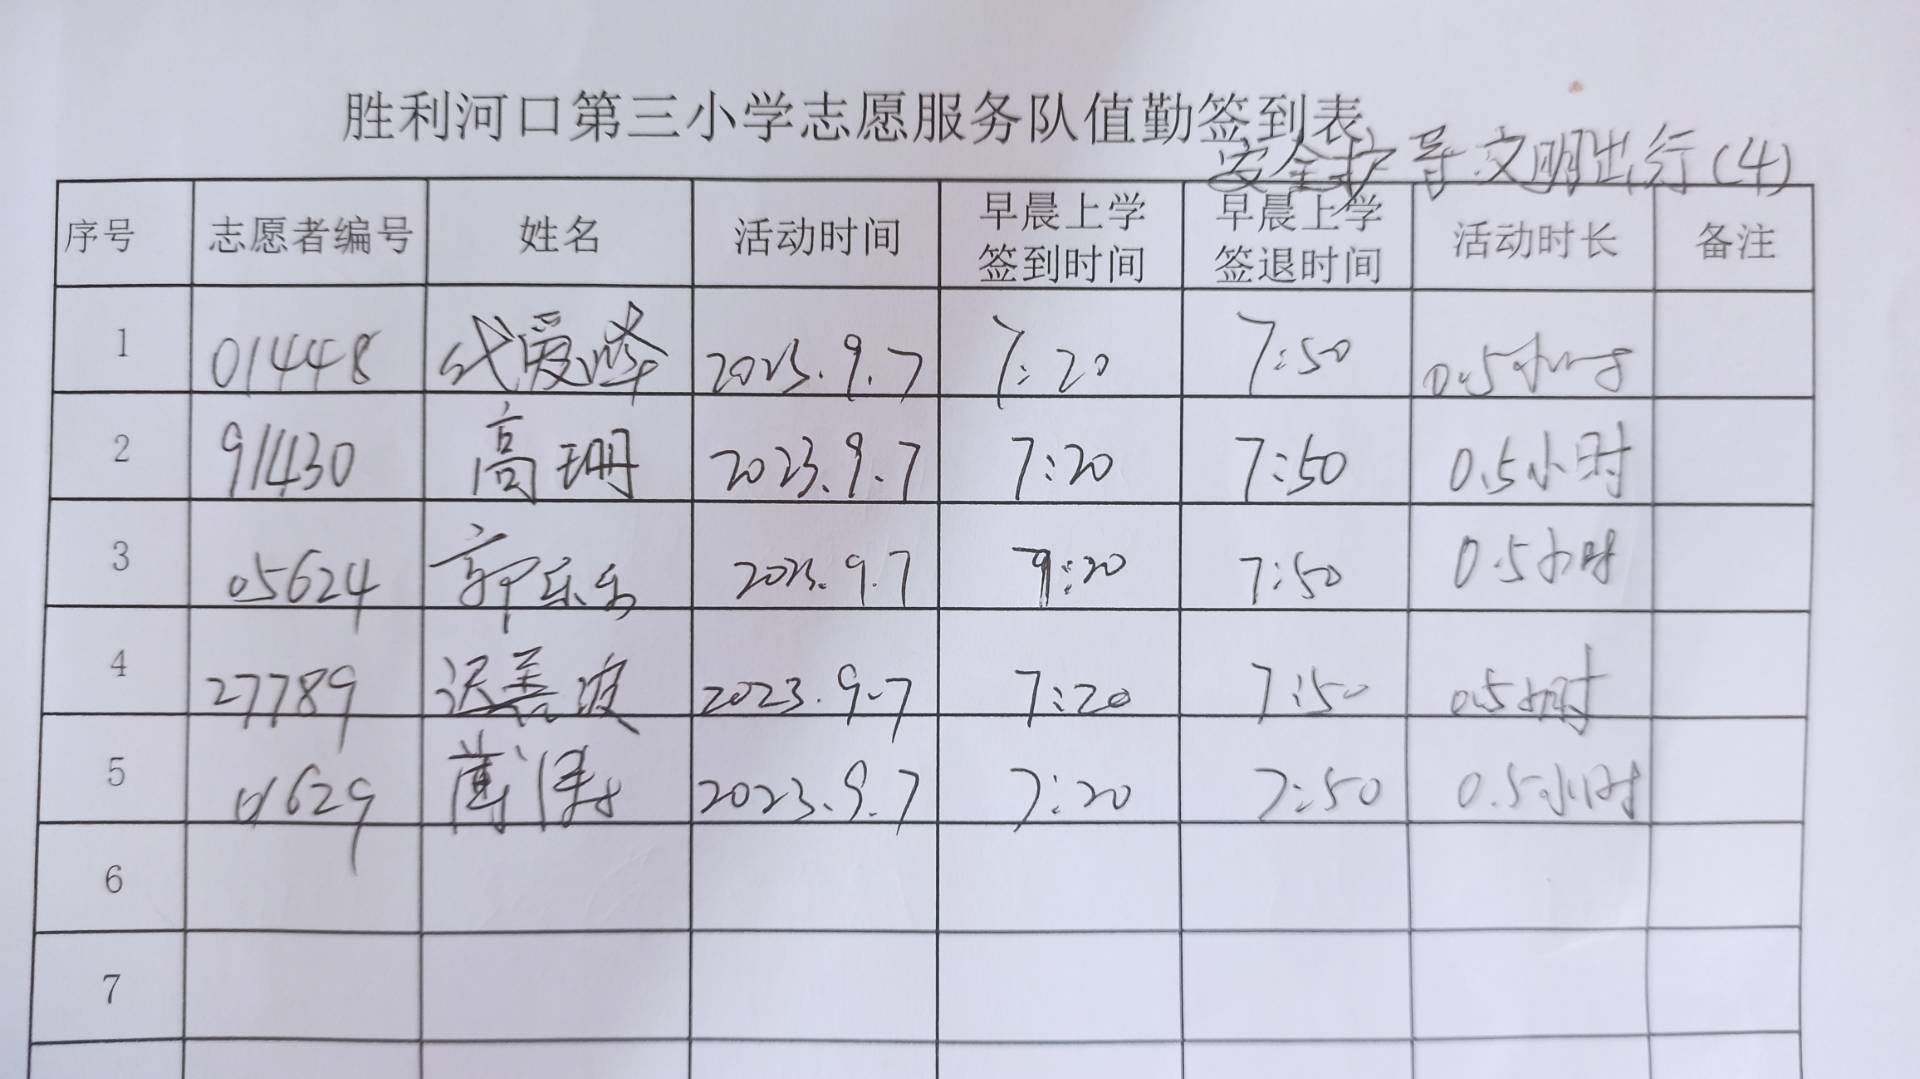 胜利河口第三小学志愿服务队值勤签到表
安全护导 文明出行(4)
序号 志愿者编号 姓名 活动时间 早晨上学签到时间 早晨上学签退时间 活动时长 备注
1 01448 代爱峰 2023.9.7 7:20 7:50 0.5小时
2 91430 高珊 2023.9.7 7:20 7:50 0.5小时
3 05624 郭乐乐 2023.9.7 7:20 7:50 0.5小时
4 27789 迟善波 2023.9.7 7:20 7:50 0.5小时
5 01629 2023.9.7 7:20 7:50 0.5小时
6
7